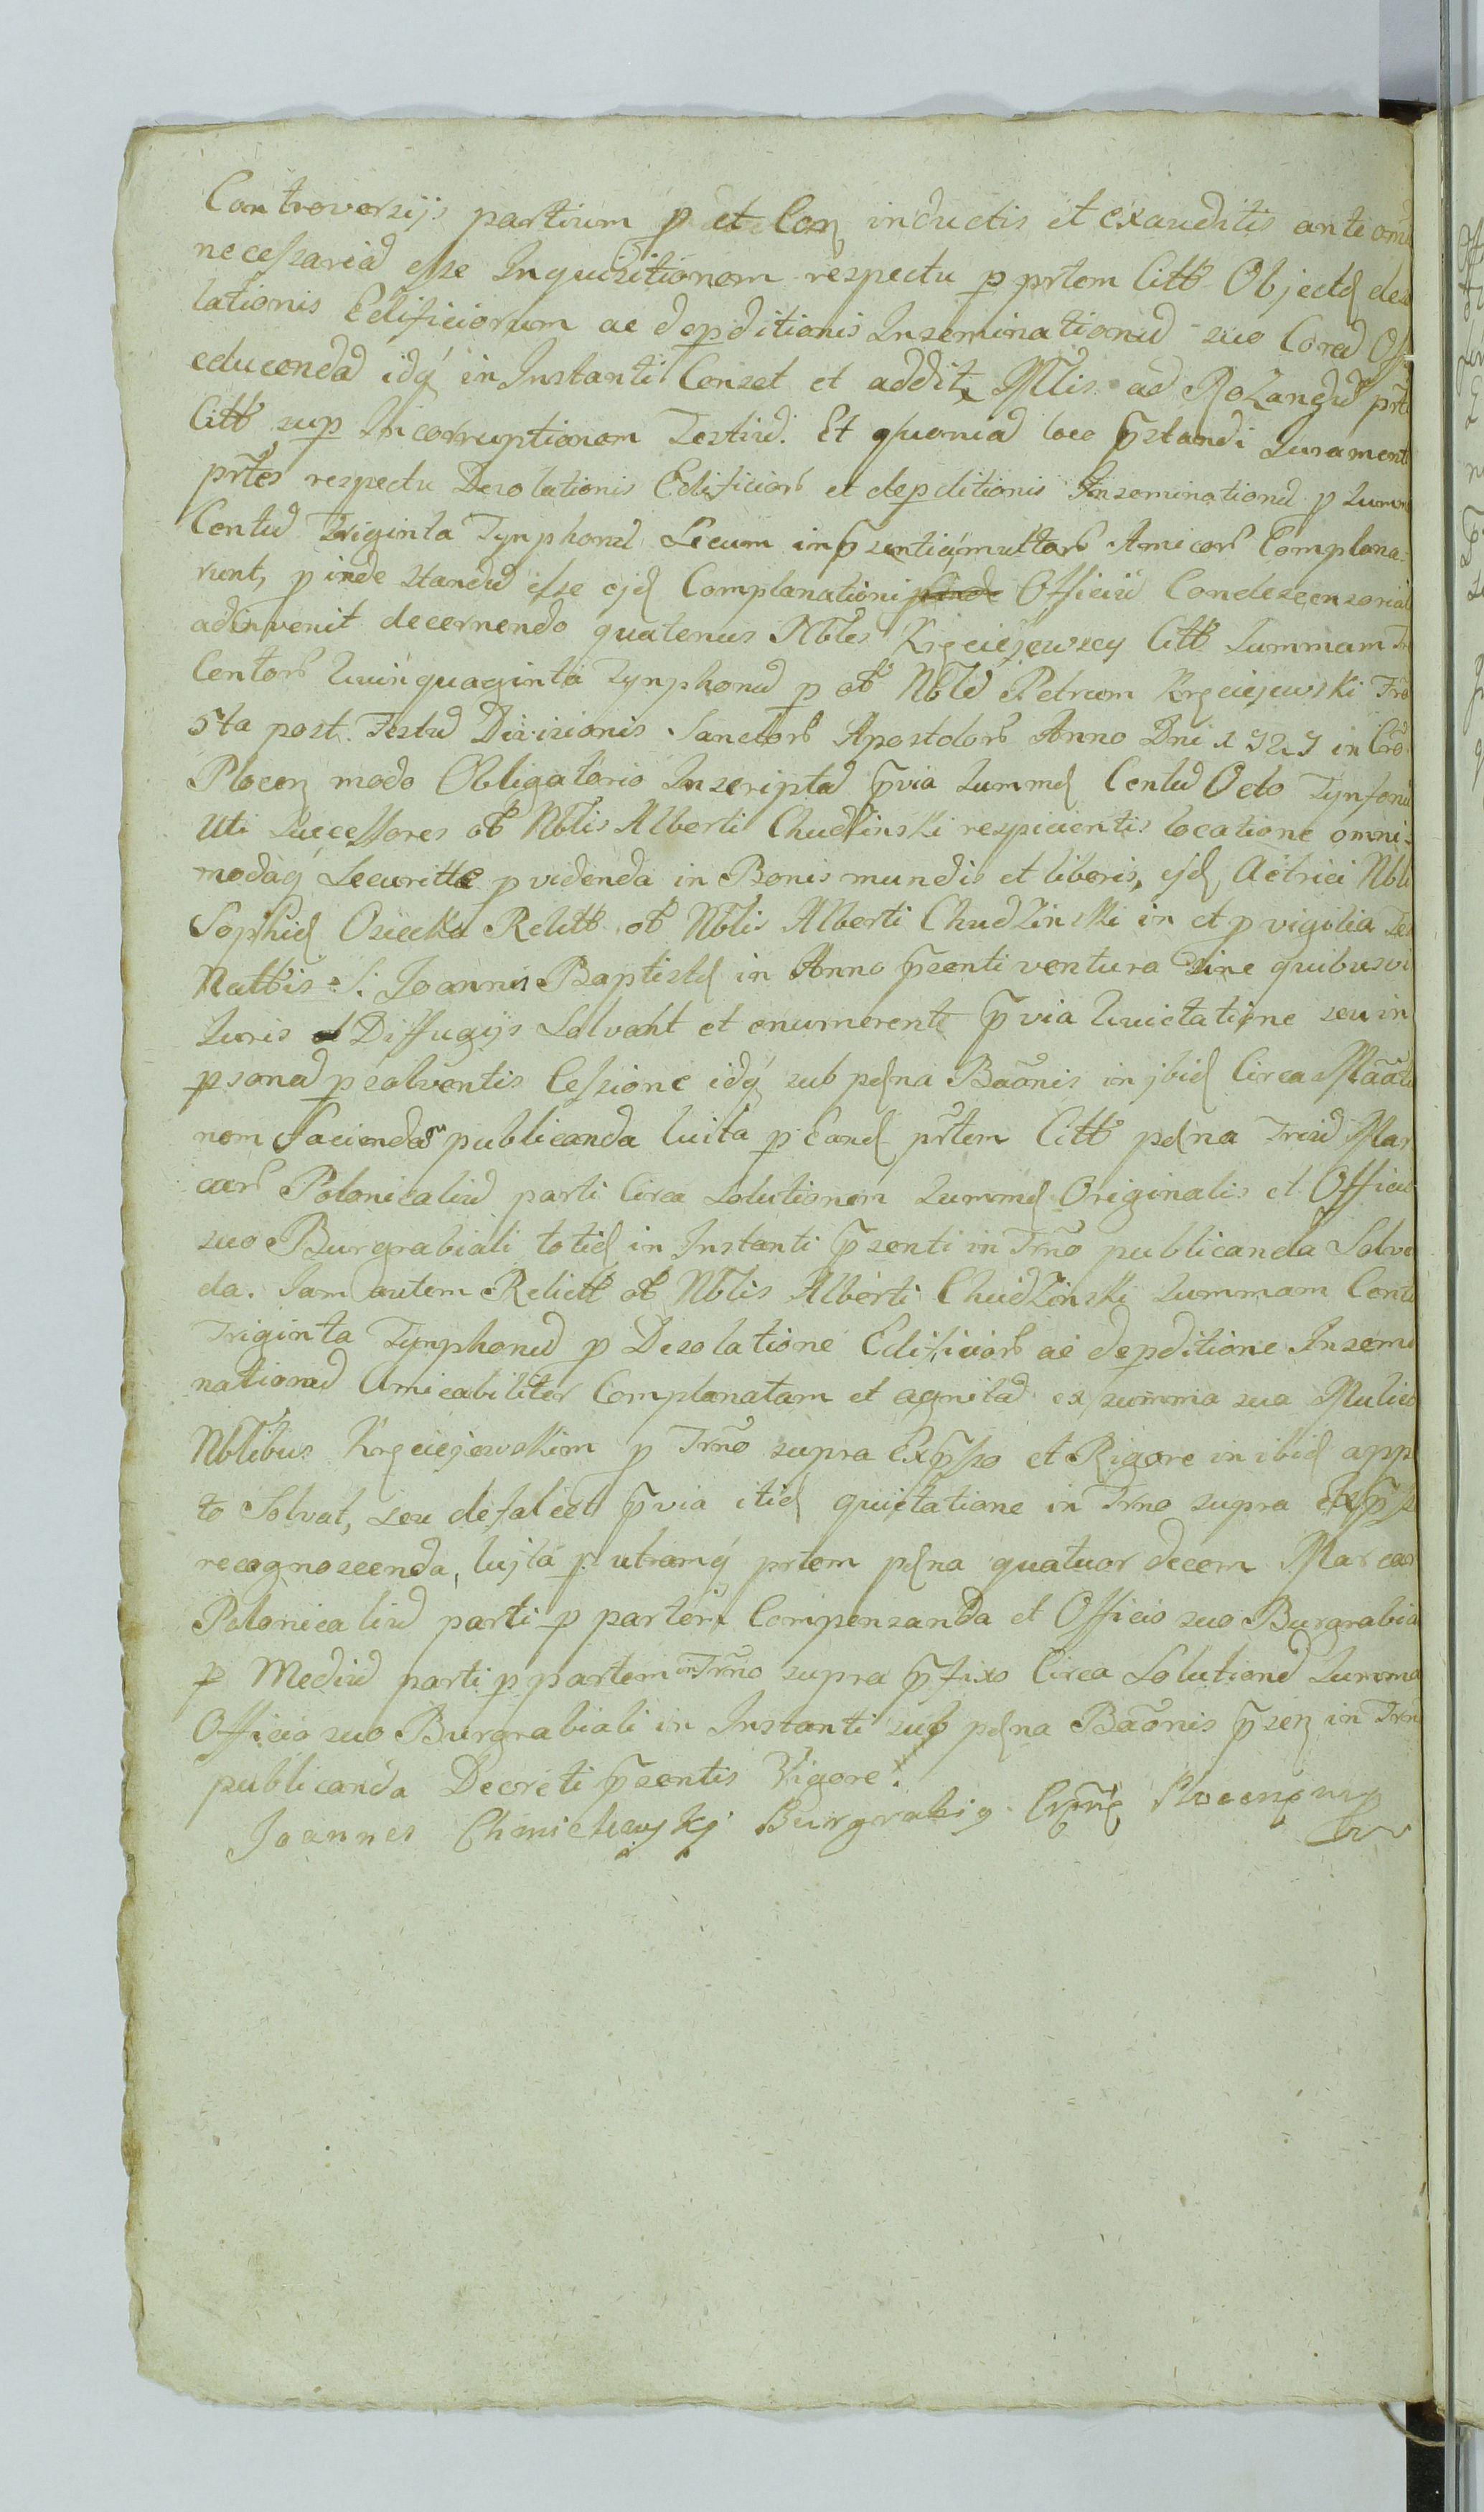 Controversijs partium p et Con inductis et exauditis ante omē
necessariā esse Inquisitionem respectu p prtem Citt Objectæ deso
lationis Edificiorum ac depditionis Inseminationū suo Corā Off
educendā idq́ in Instanti Censet et addit Mtlis ad Rozangū prte
Citt sup Incorruptionem Testiū. Et quoniā loco p̄standi Jurament
prtes respectu Desolationis Edificior et depditionis Inseminationū p summ
Centū Triginta Tynphonū Secum in p̄sentiq́ multor Amicor Complana-
runt, p inde standū esse ejd Complanationi Officiū Condescensoria
adinvenit decernendo quatenus Nbles Kręciejewscy Citt Summam Tr
Centor Quinquaginta Tynphonū p ol Nblē Petrum Kręciejewski Fra
5ta post Festū Divisionis Sanctor Apostolor Anno Dni 1727 in Cro
Plocen modo Obligatorio Inscriptā p̄via Summæ Centū Octo Tynfonū
Uti Successores ol Nblis Alberti Chudzinski respicientis locatione omni-
modaq́ Securitte pvidenda in Bonis mundis et liberis, ejd Actrici Nbli
Sophiæ Osiecka Relitt ol Nblis Alberti Chudzinski in et p vigilia Fes
Nattis S. Joannis Baptistæ in Anno p̄senti ventura sine quibusvi
Juris Diffugijs Solvant et enumerent p̄via Quietatione seu in
psonā psolventis Cessione idq́ sub pæna Baōnis in jbid Circa Māāti
nem faciendā publicanda luita p Eand prtem Citt pæna Triū Mar
car Polonicaliū parti Circa Solutionem Summæ Originalis et Officio
suo Burgrabiali totid in Instanti p̄senti in Trno publicanda Solve
da. Jam autem Relictt ol Nblis Alberti Chudzinski Summam Centū
Triginta Tynphonū p Desolatione Edificior ac depditione Insemi
nationū Amicabiliter Complanatam et agnitā ex summa sua
Nblibus Kręciejewskim p Trno supra Exp̄sso et Rigore in ibid app
to Solvat, seu defalcet p̄via itid quietatione in Trno supra Exp̄sso
recognoscenda, lujta p utramq́ prtem pæna quatuordecem Marcar
Polonicaliū parti p partem Compensanda et Officio suo Burgrabia
p Mediū parti p partem in Trno supra p̄fixo Circa Solutionē Summa
Officio suo Burgrabiali in Instanti sub pæna Baōnis p̄sen in Trno
publicanda Decreti p̄sentis Vigore.
Joannes Burgrabi9